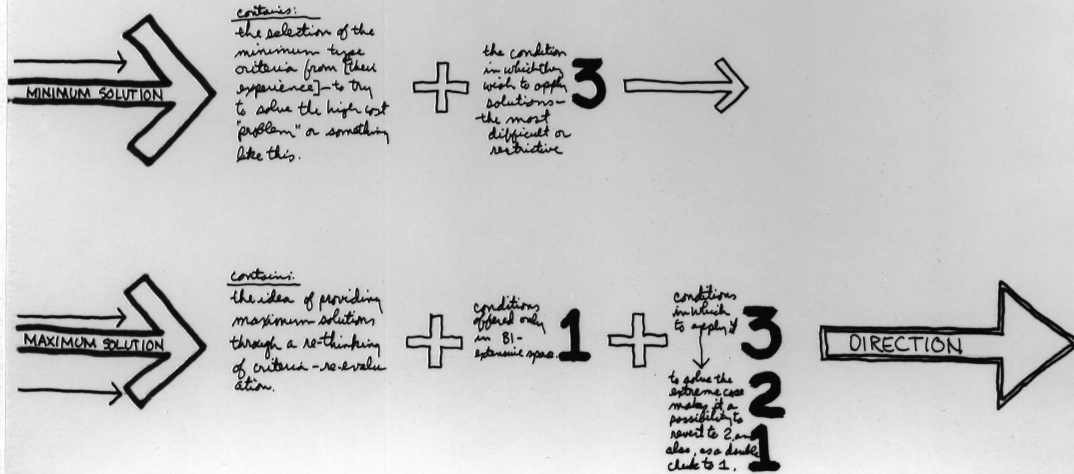 MINIMUM SOLUTION
contains:
the selection of the
minimum type
criteria from [their
experience] - to try
to solve the high cost
"problem" or something
like this.
the condition
in which they
wish to apply
solutions -
the most
difficult or
restrictive
3
MAXIMUM SOLUTION
contains:
the idea of providing
maximum solutions
through a re-thinking
of criteria - re-evalu
ation.
conditions
offered only
in BI-
extensive space.
1
conditions
in which
to apply it
3
to solve the
extreme case
makes it a
possibility to
revert to 2, and
also, as a double
check to 1.
2
1
DIRECTION